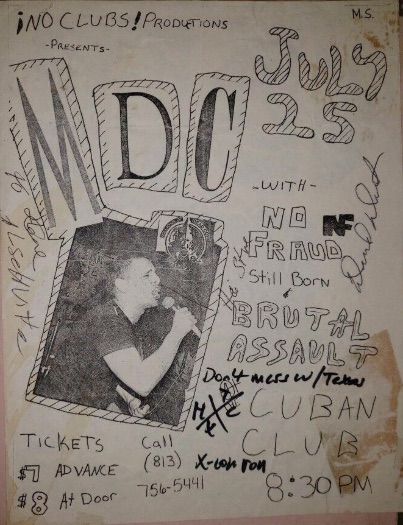 ¡NO CLUBS! PRODUCTIONS
M.S.
-PRESENTS-
MDC
JULY
15
-WITH-
NO
FRAUD
NF
Still Born
&
BRUTAL
ASSAULT
Don't mess w/Texas
CUBAN
CLUB
8:30 PM
TICKETS
$7 ADVANCE
$8 At Door
Call
(813)
756-5441